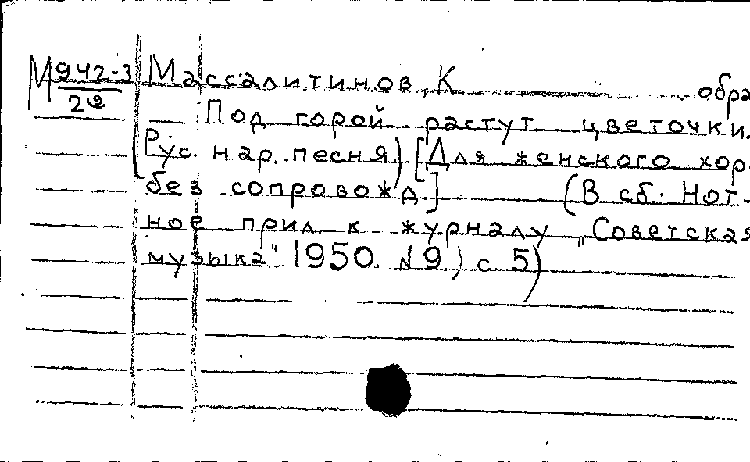 М 942-3 Массалитинов, К обра
28 Под горой растут цветочки.
(Рус. нар. песня) [Для женского хор.
без сопровожд.] (В сб. Нот-
ное прил к журналу „Советская
музыка" 1950. №9) с 5)